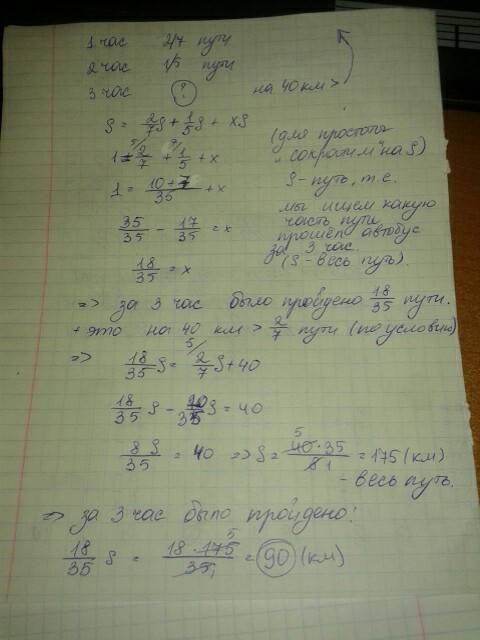 1 час 2/7 пути
2 час 1/5 пути
3 час ? на 40 км >
S = 2/7 S + 1/5 S + xS
(для простоты "сократим" на S)
1 = 2/7 + 1/5 + x
S - путь, т.е.
1 = (10+7)/35 + x
мы ищем какую
часть пути
35/35 - 17/35 = x
прошёл автобус
за 3 час.
18/35 = x
(S - весь путь).
=> за 3 час было пройдено 18/35 пути.
+ это на 40 км > 2/7 пути (по условию)
=> 18/35 S = 2/7 S + 40
18/35 S - 10/35 S = 40
8S/35 = 40 => S = 40·35/8 = 175 (км)
- весь путь.
=> за 3 час было пройдено:
18/35 S = 18·175/35 = 90 (км)